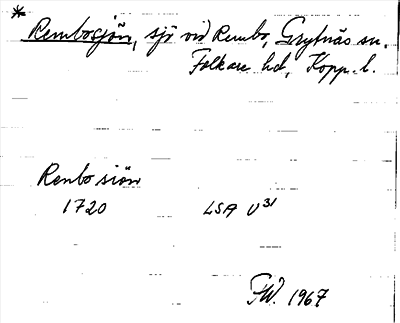 * Rembosjön, sjö vid Rembo, Grytnäs sn.
Folkare hd, Kopp. l.
Renbo siön
1720 LSA U³¹
F.W. 1967